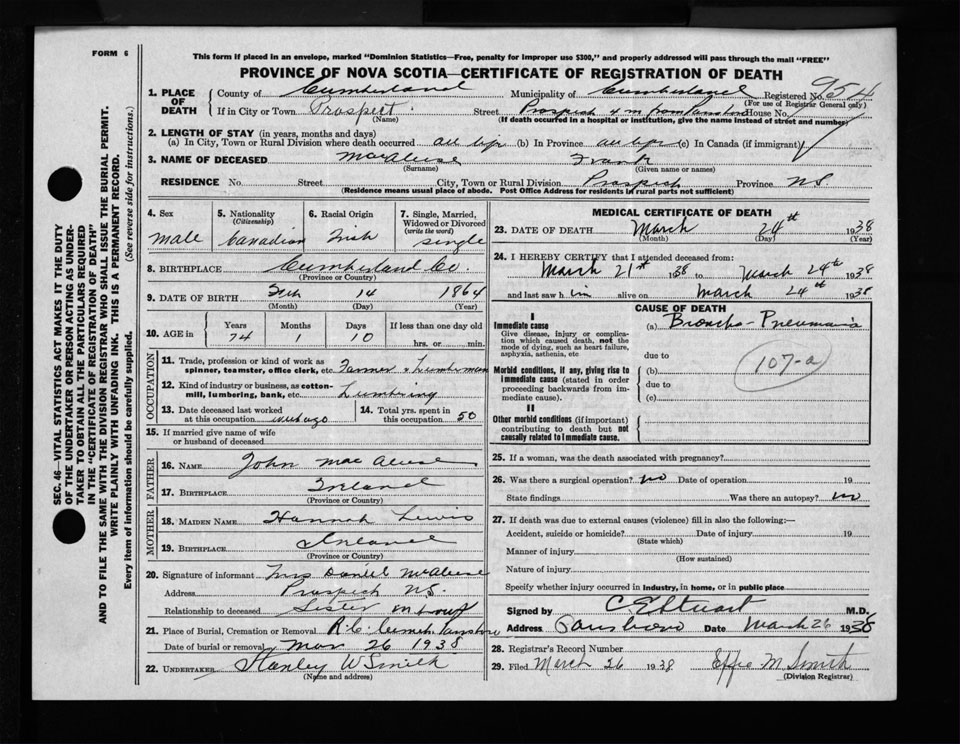 FORM 6
This form if placed in an envelope, marked "Dominion Statistics—Free, penalty for improper use $300," and properly addressed will pass through the mail "FREE"
PROVINCE OF NOVA SCOTIA—CERTIFICATE OF REGISTRATION OF DEATH
SEC. 46—VITAL STATISTICS ACT MAKES IT THE DUTY
OF THE UNDERTAKER OR PERSON ACTING AS UNDER-
TAKER TO OBTAIN ALL THE PARTICULARS REQUIRED
IN THE "CERTIFICATE OF REGISTRATION OF DEATH"
AND TO FILE THE SAME WITH THE DIVISION REGISTRAR WHO SHALL ISSUE THE BURIAL PERMIT.
WRITE PLAINLY WITH UNFADING INK. THIS IS A PERMANENT RECORD.
Every item of information should be carefully supplied. (See reverse side for instructions.)
1. PLACE OF DEATH County of Cumberland Municipality of Cumberland Registered No. 954
(For use of Registrar General only)
If in City or Town Prospect Street Prospect from House No.
(Name) (If death occurred in a hospital or institution, give the name instead of street and number)
2. LENGTH OF STAY (in years, months and days)
(a) In City, Town or Rural Division where death occurred all life (b) In Province all life (c) In Canada (if immigrant)
3. NAME OF DECEASED MacAleese Frank
(Surname) (Given name or names)
RESIDENCE No. Street City, Town or Rural Division Prospect Province N.S.
(Residence means usual place of abode. Post Office Address for residents in rural parts not sufficient)
4. Sex male
5. Nationality (Citizenship) Canadian
6. Racial Origin Irish
7. Single, Married, Widowed or Divorced (write the word) single
8. BIRTHPLACE Cumberland Co.
(Province or Country)
9. DATE OF BIRTH Feb 14 1864
(Month) (Day) (Year)
10. AGE in Years 74 Months 1 Days 10 If less than one day old hrs. or min.
OCCUPATION
11. Trade, profession or kind of work as spinner, teamster, office clerk, etc. Farmer & Lumberman
12. Kind of industry or business, as cotton-mill, lumbering, bank, etc. Lumbering
13. Date deceased last worked at this occupation ago
14. Total yrs. spent in this occupation 50
15. If married give name of wife or husband of deceased
FATHER
16. NAME John MacAleese
17. BIRTHPLACE Ireland
(Province or Country)
MOTHER
18. MAIDEN NAME Hannah Lewis
19. BIRTHPLACE Ireland
(Province or Country)
20. Signature of informant Mrs Daniel McAleese
Address Prospect N.S.
Relationship to deceased Sister in Law
21. Place of Burial, Cremation or Removal R.C. Parrsboro
Date of burial or removal Mar 26 1938
22. UNDERTAKER Stanley W Smith
(Name and address)
MEDICAL CERTIFICATE OF DEATH
23. DATE OF DEATH March 24th 1938
(Month) (Day) (Year)
24. I HEREBY CERTIFY that I attended deceased from:
March 21st 1938 to March 24th 1938
and last saw him alive on March 24th 1938
CAUSE OF DEATH
I
Immediate cause
Give disease, injury or complication which caused death, not the mode of dying, such as heart failure, asphyxia, asthenia, etc
(a) Broncho-Pneumonia
due to
Morbid conditions, if any, giving rise to immediate cause (stated in order proceeding backwards from immediate cause).
(b)
107-a
due to
(c)
II
Other morbid conditions (if important) contributing to death but not causally related to immediate cause.
25. If a woman, was the death associated with pregnancy?
26. Was there a surgical operation? no Date of operation 19
State findings Was there an autopsy? no
27. If death was due to external causes (violence) fill in also the following:—
Accident, suicide or homicide? Date of injury 19
(State which)
Manner of injury
(How sustained)
Nature of injury
Specify whether injury occurred in industry, in home, or in public place
Signed by C E Stuart M.D.
Address Parrsboro Date March 26 1938
28. Registrar's Record Number
29. Filed March 26 1938 Effie M. Smith
(Division Registrar)